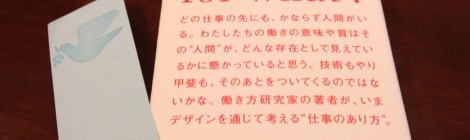 for What?
どの仕事の先にも、かならず人間がい
る。わたしたちの働きの意味や質はそ
の“人間”が、どんな存在として見えてい
るかに懸かっていると思う。技術もやり
甲斐も、そのあとをついてくるのではな
いかな。働き方研究家の著者が、いま
デザインを通じて考える“仕事のあり方”。